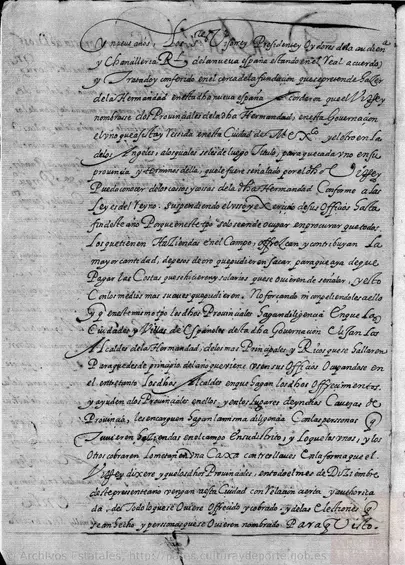 y nueve años, Los Visorey Presidente y oydores de la audien
y Chancilleria R.l de la nueva españa estando en el Real acuerdo
y Tratado y conferido en el cerca de la fundacion que se pretende hazer
de la Hermandad en esta dha nueva españa Acordaron que el Virrey
nombrase dos Provinciales de la dha Hermandad, en esta Governacion
el vno que asista y Resida en esta Ciudad de Mex.co y el otro en la
de los Angeles, a los quales se les de luego titulo, para que cada vno en su
provincia, y terminos della, que le fuere señalado por el dho Virrey
Pueda conocer de los casos y cosas de la dha Hermandad Conforme a las
Leyes del Reyno. suspendiendo el vso y exercicio de sus Officios hasta
fin deste año Porque en este tpo solo se an de ocupar en procurar que todos
Los que tienen Haziendas en el Campo offrezcan y contribuyan La
mayor cantidad, de pesos de oro que pudieren sacar, para que aya de que
Pagar las Costas que se hizieren y salarios que se ovieren de señalar, y esto
Con los medios mas suaves que pudieren. No forçando ni compeliendoles a ello
y q en este mismo tpo los dhos Provinciales hagan diligencia En que Las
Ciudades y Villas de Españoles de la dha Governacion Elijan Los
Alcaldes de la Hermandad, de los mas Principales, y Ricos que se hallaren
Para que desde principio del año que viene vsen sus Officios Ocupandose en
el entretanto Los dhos Alcaldes en que hagan los dhos Offrecimientos
y ayuden a los Provinciales en ellos y en los Lugares de yndios Caveças de
Provincia, les encarguen hagan la misma diligencia Con las personas q
Tuvieren haziendas en el campo En su districto, y Lo que los vnos, y los
otros cobraren Lo metan en vna Caxa con tres llaves En la forma que el
Virrey dixere y que los dhos Provinciales, en todo el mes de Diziembre
deste presente año vengan a esta Ciudad con Relacion cierta y autoriza
da, de Todo lo que se Oviere Offrecido y cobrado, y de las Electiones q
se an hecho y personas que se Ovieren nombrado Para q Visto